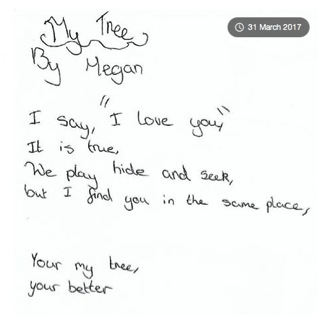 My Tree
31 March 2017
By Megan
I say, "I love you,"
It is true,
We play hide and seek,
but I find you in the same place,
Your my tree,
your better